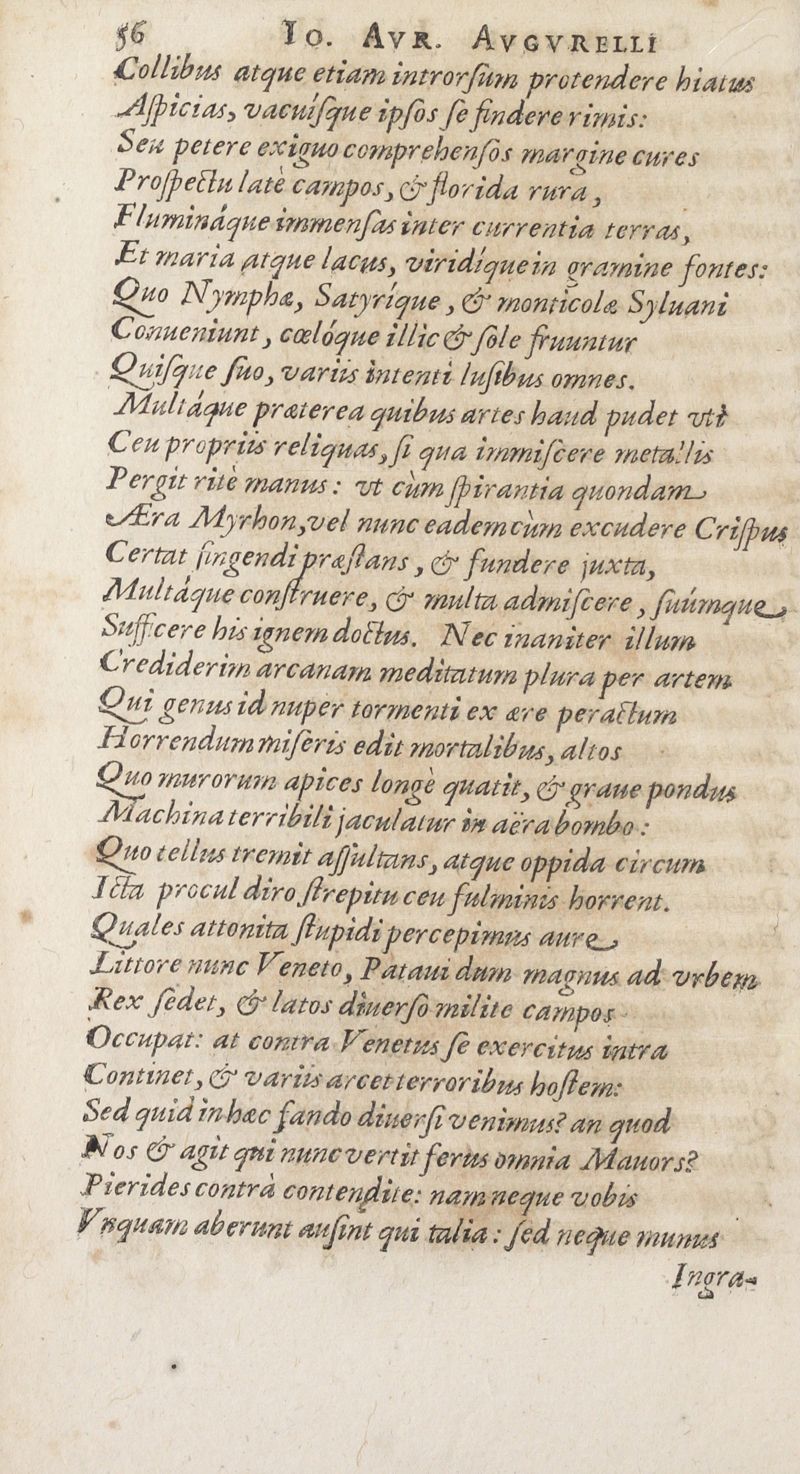 56 IO. AVR. AVGVRELLI
Collibus atque etiam introrſum protendere hiatus
Aſpicias, vacuiſque ipſos ſe findere rimis:
Seu petere exiguo comprehenſos margine cures
Proſpectu latè campos, & florida rura,
Fluminàque immenſas inter currentia terras,
Et maria atque lacus, viridíque in gramine fontes:
Quo Nymphæ, Satyríque, & monticolæ Syluani
Conueniunt, cœlóque illic & ſole fruuntur
Quiſque ſuo, variis intenti luſibus omnes.
Multáque præterea quibus artes haud pudet vti
Ceu propriis reliquas, ſi qua immiſcere metallis
Pergit ritè manus: vt cùm ſpirantia quondam
Æra Myrhon, vel nunc eadem cùm excudere Criſpus
Certat fingendi præſtans, & fundere juxta,
Multáque conſtruere, & multa admiſcere, ſuúmque
Sufficere his ignem doctus. Nec inaniter illum
Crediderim arcanam meditatum plura per artem
Qui genus id nuper tormenti ex ære peractum
Horrendum miſeris edit mortalibus, altos
Quo murorum apices longè quatit, & graue pondus
Machina terribili jaculatur in aëra bombo:
Quo tellus tremit aſſultans, atque oppida circum
Icta procul diro ſtrepitu ceu fulminis horrent.
Quales attonita ſtupidi percepimus aure
Littore nunc Veneto, Pataui dum magnus ad vrbem
Rex ſedet, & latos diuerſo milite campos
Occupat: at contra Venetus ſe exercitus intra
Continet, & variis arcet terroribus hoſtem:
Sed quid in hæc fando diuerſi venimus? an quod
Nos & agit qui nunc vertit ferus omnia Mauors?
Pierides contrà contendite: nam neque vobis
Vnquam aberunt auſint qui talia: ſed neque munus
Ingra-